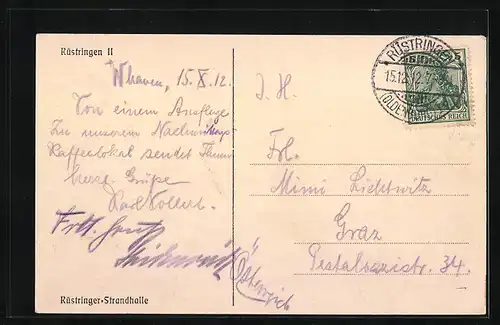 Rüstringen II
Whaven, 15.X.12.
Von einem Ausfluge
zu unserem Nachmittags-
Kaffeelokal sendet Ihnen
herzl. Grüße
Karl Kollert.
Frdl. Gruß
Rüstringer-Strandhalle
RÜSTRINGEN
15.12.12.7-8
(OLDENB
5
DEUTSCHES REICH
I. H.
Frl.
Mimi Lichtwitz
Graz
Pestalozzistr. 34.
Österreich